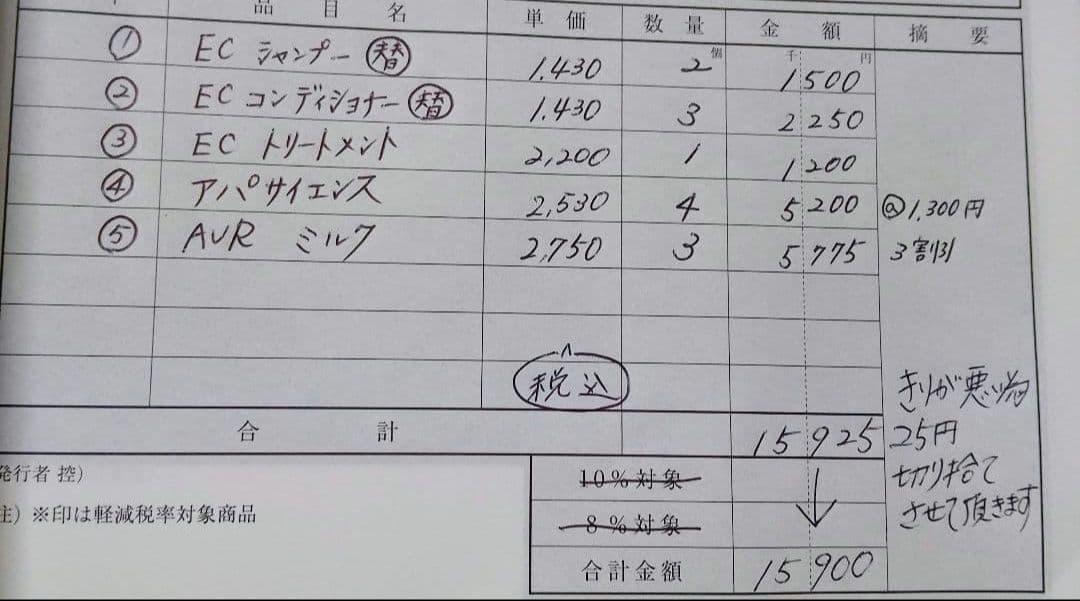 品 目 名 単 価 数 量 金 額 摘 要
個 千 円
① EC シャンプー 替 1,430 2 1500
② EC コンディショナー 替 1,430 3 2250
③ EC トリートメント 2,200 1 1200
④ アパサイエンス 2,530 4 5200 @1,300円
⑤ AUR ミルク 2,750 3 5775 3割引
税込
合 計 15925
きりが悪い為
25円
切り捨て
させて頂きます
発行者 控)
10%対象
注) ※印は軽減税率対象商品
8%対象
合計金額 15900